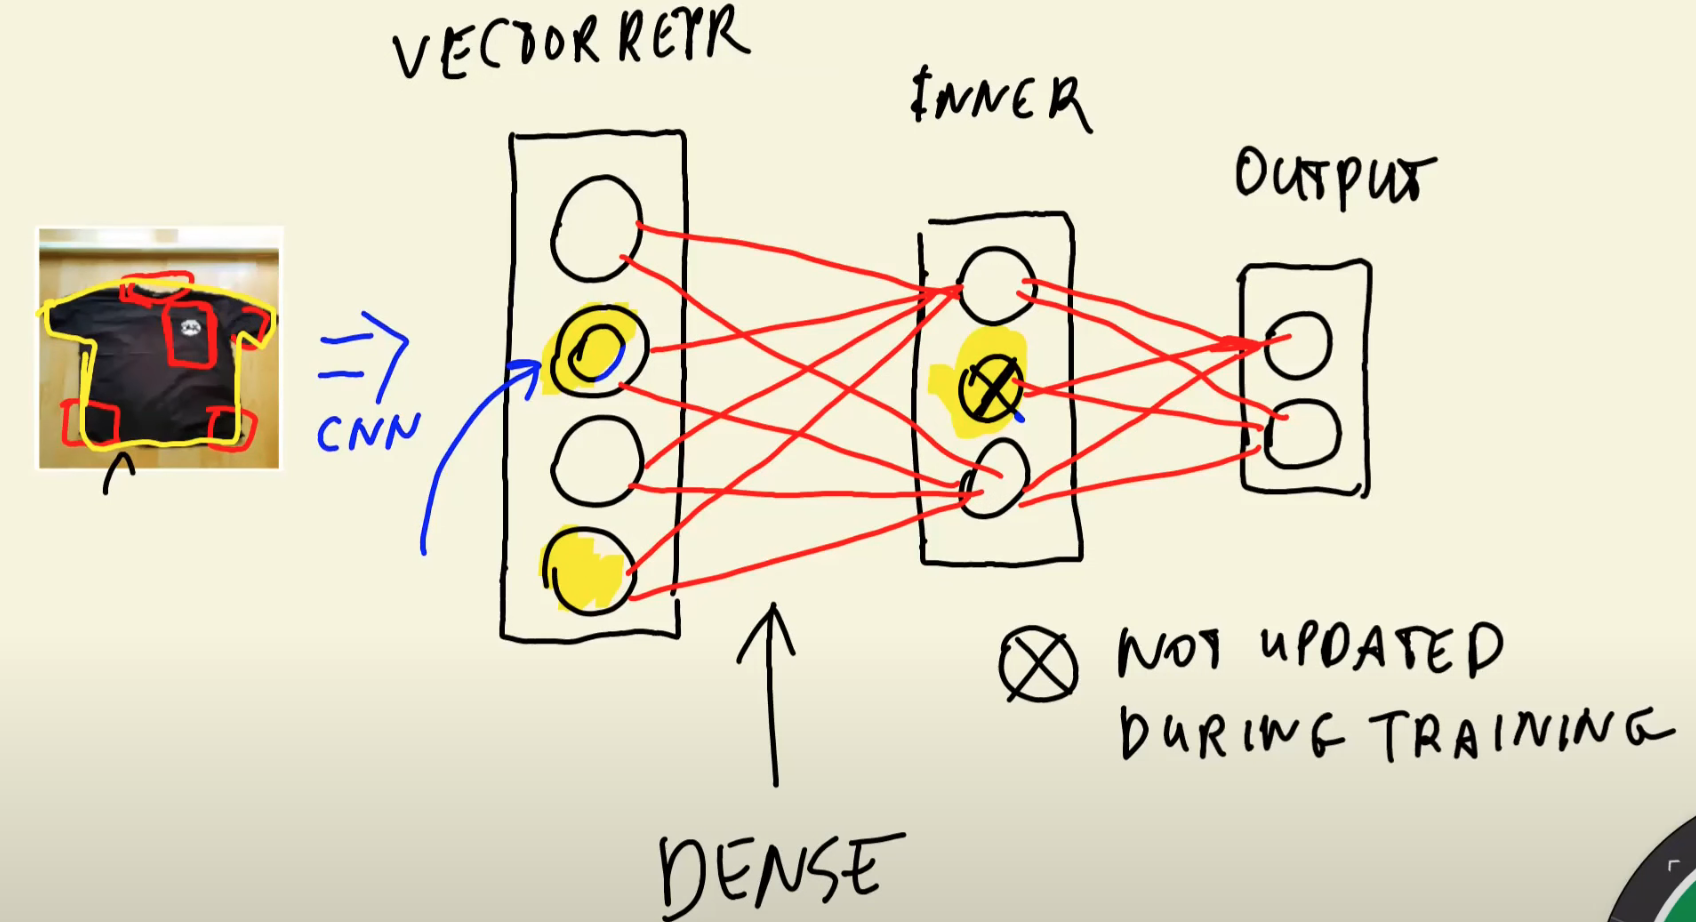 VECTOR REPR
INNER
OUTPUT
CNN
NOT UPDATED
DURING TRAINING
DENSE